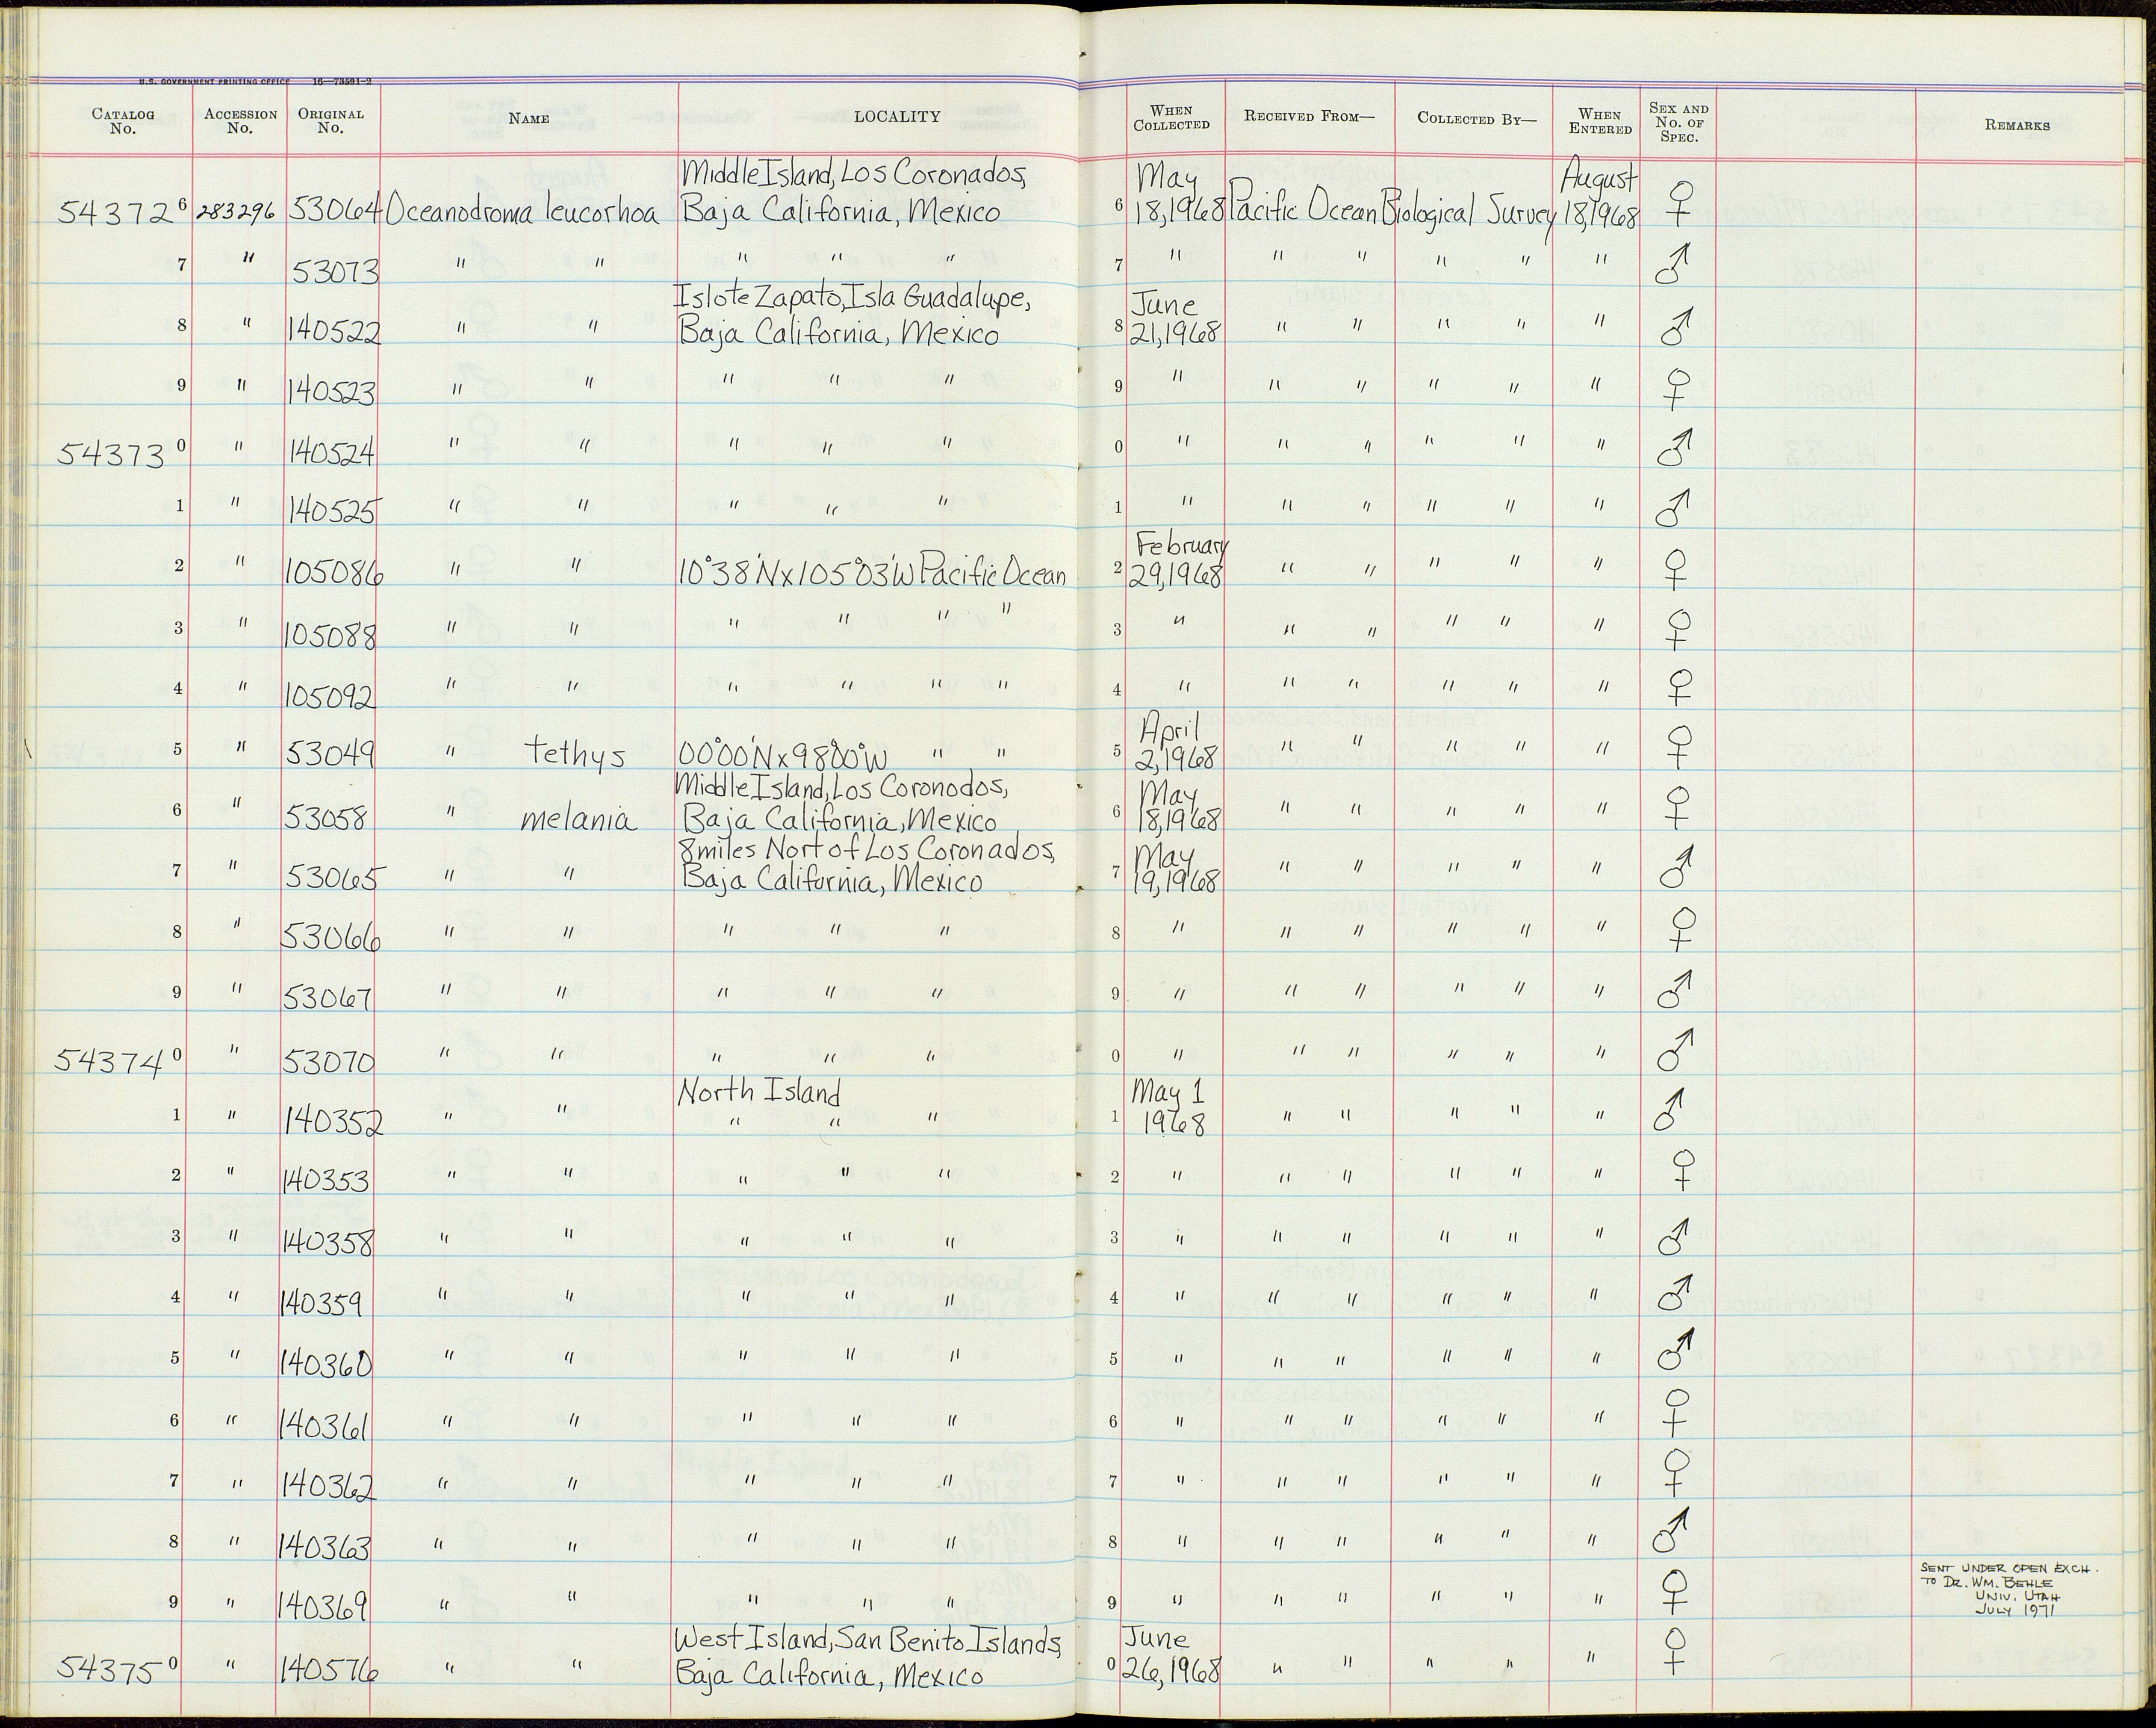 U.S. GOVERNMENT PRINTING OFFICE 16—73591-2
CATALOG No. ACCESSION No. ORIGINAL No. NAME LOCALITY WHEN COLLECTED RECEIVED FROM— COLLECTED BY— WHEN ENTERED SEX AND No. OF SPEC. REMARKS
Middle Island, Los Coronados, May August
54372 6 283296 53064 Oceanodroma leucorhoa Baja California, Mexico 6 18,1968 Pacific Ocean Biological Survey 18,1968 ♀
7 " 53073 " " " " " 7 " " " " " " ♂
Islote Zapato, Isla Guadalupe, June
8 " 140522 " " Baja California, Mexico 8 21,1968 " " " " " ♂
9 " 140523 " " " " " 9 " " " " " " ♀
54373 0 " 140524 " " " " " 0 " " " " " " ♂
1 " 140525 " " " " " 1 " " " " " " ♂
February
2 " 105086 " " 10°38'N x 105°03'W Pacific Ocean 2 29,1968 " " " " " ♀
3 " 105088 " " " " " " 3 " " " " " " ♀
4 " 105092 " " " " " " 4 " " " " " " ♀
April
5 " 53049 " tethys 00°00'N x 98°00'W " " 5 2,1968 " " " " " ♀
Middle Island, Los Coronodos, May
6 " 53058 " melania Baja California, Mexico 6 18,1968 " " " " " ♀
8 miles Nort of Los Coronados, May
7 " 53065 " " Baja California, Mexico 7 19,1968 " " " " " ♂
8 " 53066 " " " " " 8 " " " " " " ♀
9 " 53067 " " " " " 9 " " " " " " ♂
54374 0 " 53070 " " " " " 0 " " " " " " ♂
North Island May 1
1 " 140352 " " " " " 1 1968 " " " " " ♂
2 " 140353 " " " " " 2 " " " " " " ♀
3 " 140358 " " " " " 3 " " " " " " ♂
4 " 140359 " " " " " 4 " " " " " " ♂
5 " 140360 " " " " " 5 " " " " " " ♂
6 " 140361 " " " " " 6 " " " " " " ♀
7 " 140362 " " " " " 7 " " " " " " ♀
8 " 140363 " " " " " 8 " " " " " " ♂
9 " 140369 " " " " " 9 " " " " " " ♀
SENT UNDER OPEN EXCH.
TO DR. WM. BEHLE
UNIV. UTAH
JULY 1971
West Island, San Benito Islands, June
54375 0 " 140576 " " Baja California, Mexico 0 26,1968 " " " " " ♀